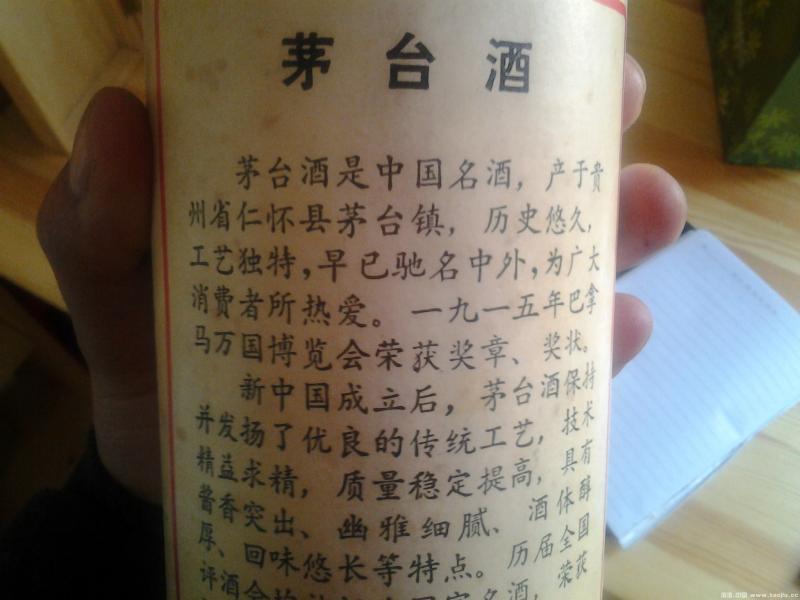 茅台酒
茅台酒是中国名酒，产于贵
州省仁怀县茅台镇，历史悠久，
工艺独特，早已驰名中外，为广大
消费者所热爱。一九一五年巴拿
马万国博览会荣获奖章、奖状。
新中国成立后，茅台酒保持
并发扬了优良的传统工艺，技术
精益求精，质量稳定提高，具有
酱香突出、幽雅细腻、酒体醇
厚、回味悠长等特点。历届全国
评酒会 国家名酒，荣获
www.kaojiu.cc